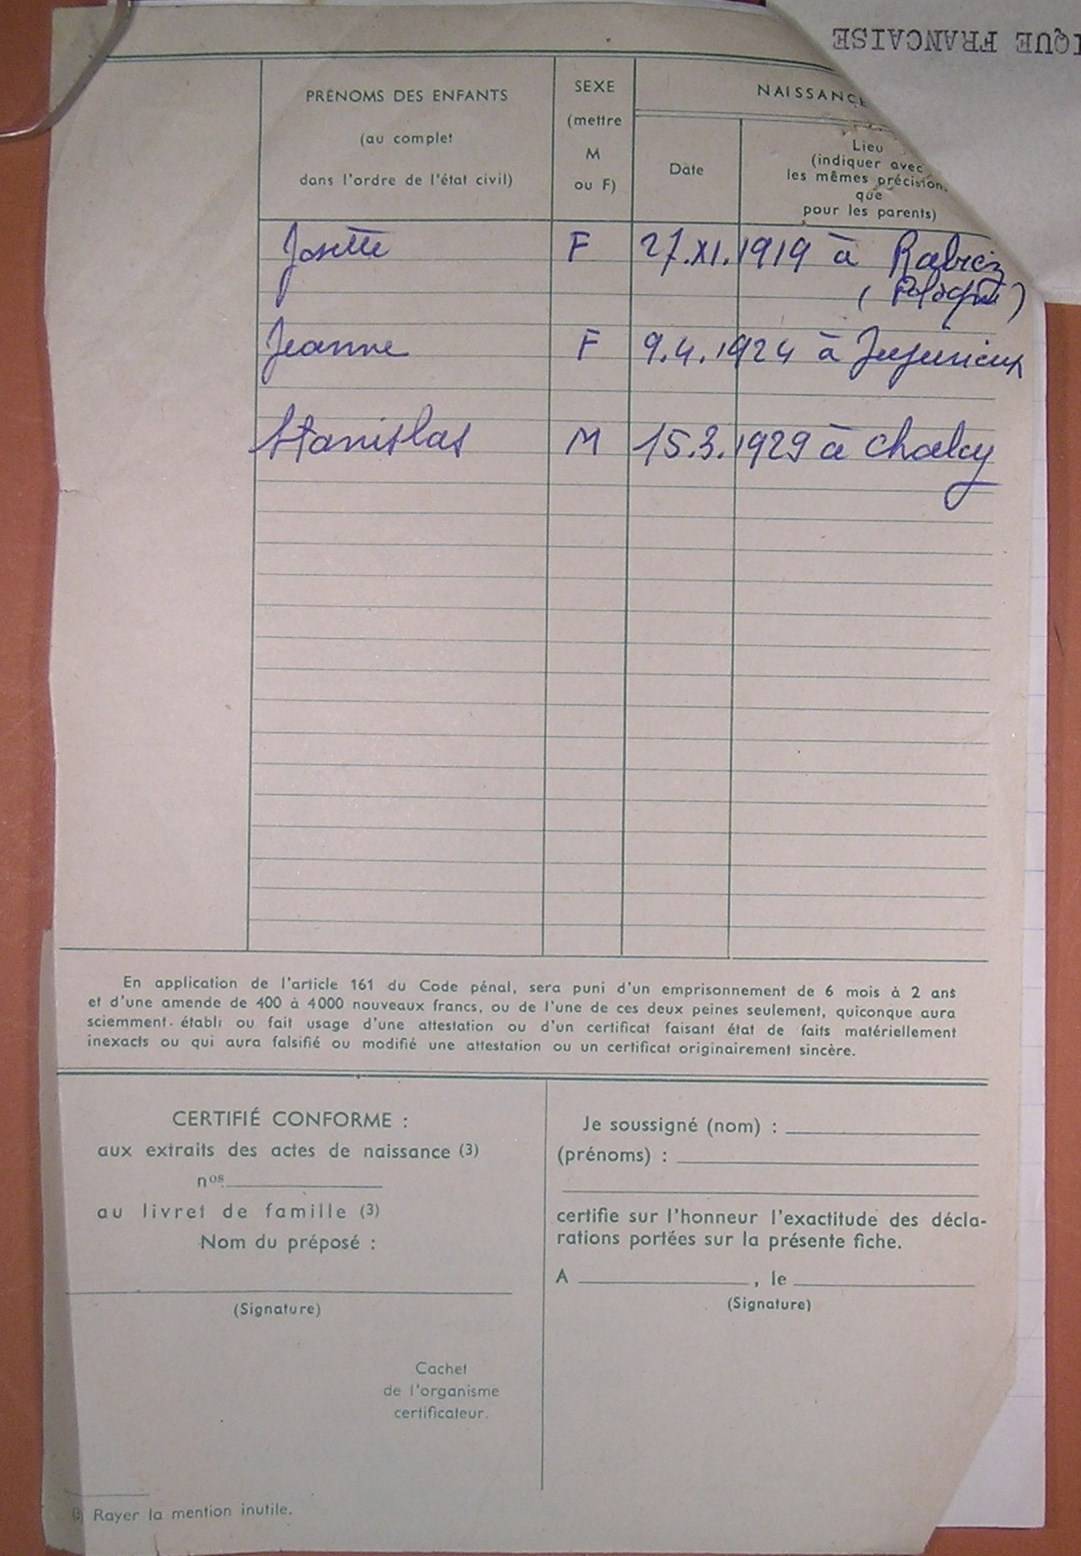 IQUE FRANCAISE
PRÉNOMS DES ENFANTS
(au complet
dans l'ordre de l'état civil)
SEXE
(mettre
M
ou F)
NAISSANCE
Date
Lieu
(indiquer avec
les mêmes précision
que
pour les parents)
Josette F 27.XI.1919 à Rabiez
(Pologne)
Jeanne F 9.4.1924 à Jujurieux
Stanislas M 15.3.1929 à Chaley
En application de l'article 161 du Code pénal, sera puni d'un emprisonnement de 6 mois à 2 ans
et d'une amende de 400 à 4000 nouveaux francs, ou de l'une de ces deux peines seulement, quiconque aura
sciemment établi ou fait usage d'une attestation ou d'un certificat faisant état de faits matériellement
inexacts ou qui aura falsifié ou modifié une attestation ou un certificat originairement sincère.
CERTIFIÉ CONFORME :
aux extraits des actes de naissance (3)
nos
au livret de famille (3)
Nom du préposé :
(Signature)
Cachet
de l'organisme
certificateur.
Je soussigné (nom) :
(prénoms) :
certifie sur l'honneur l'exactitude des décla-
rations portées sur la présente fiche.
A , le
(Signature)
(3) Rayer la mention inutile.